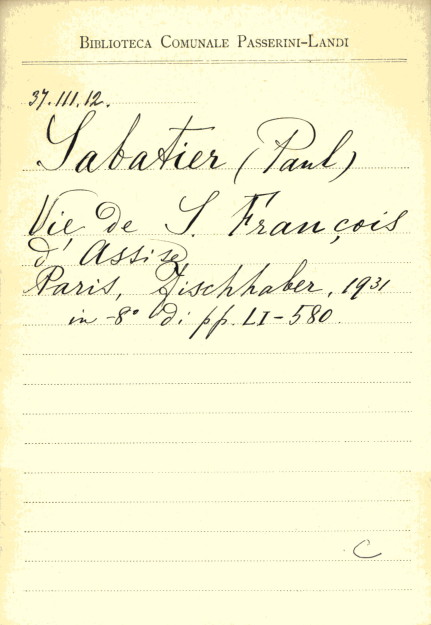 BIBLIOTECA COMUNALE PASSERINI-LANDI
37.III.12.
Sabatier (Paul)
Vie de S. François
d'Assise
Paris, Fischhaber, 1931
in -8° di pp. LI-580.
C